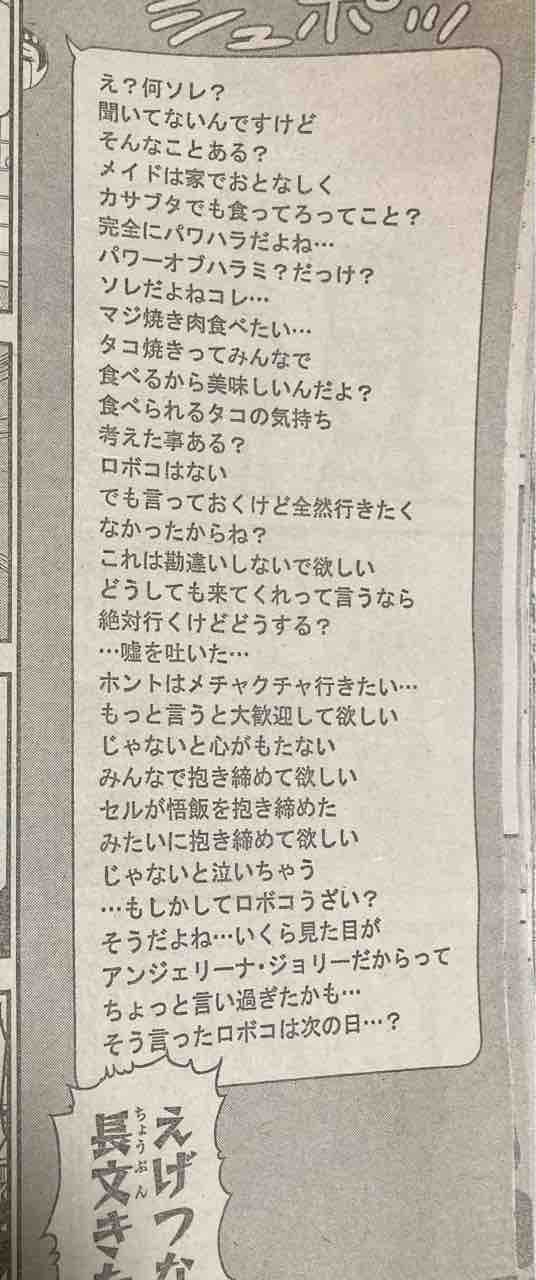 シュポッ
え？何ソレ？
聞いてないんですけど
そんなことある？
メイドは家でおとなしく
カサブタでも食ってろってこと？
完全にパワハラだよね…
パワーオブハラミ？だっけ？
ソレだよねコレ…
マジ焼き肉食べたい…
タコ焼きってみんなで
食べるから美味しいんだよ？
食べられるタコの気持ち
考えた事ある？
ロボコはない
でも言っておくけど全然行きたく
なかったからね？
これは勘違いしないで欲しい
どうしても来てくれって言うなら
絶対行くけどどうする？
…嘘を吐いた…
ホントはメチャクチャ行きたい…
もっと言うと大歓迎して欲しい
じゃないと心がもたない
みんなで抱き締めて欲しい
セルが悟飯を抱き締めた
みたいに抱き締めて欲しい
じゃないと泣いちゃう
…もしかしてロボコうざい？
そうだよね…いくら見た目が
アンジェリーナ・ジョリーだからって
ちょっと言い過ぎたかも…
そう言ったロボコは次の日…？
えげつな
長文きた
ちょうぶん